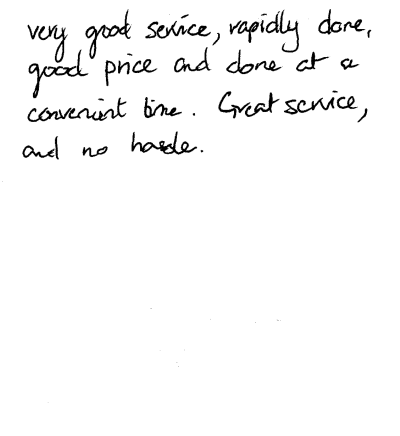 very good service, rapidly done,
good price and done at a
convenient time. Great service,
and no hassle.